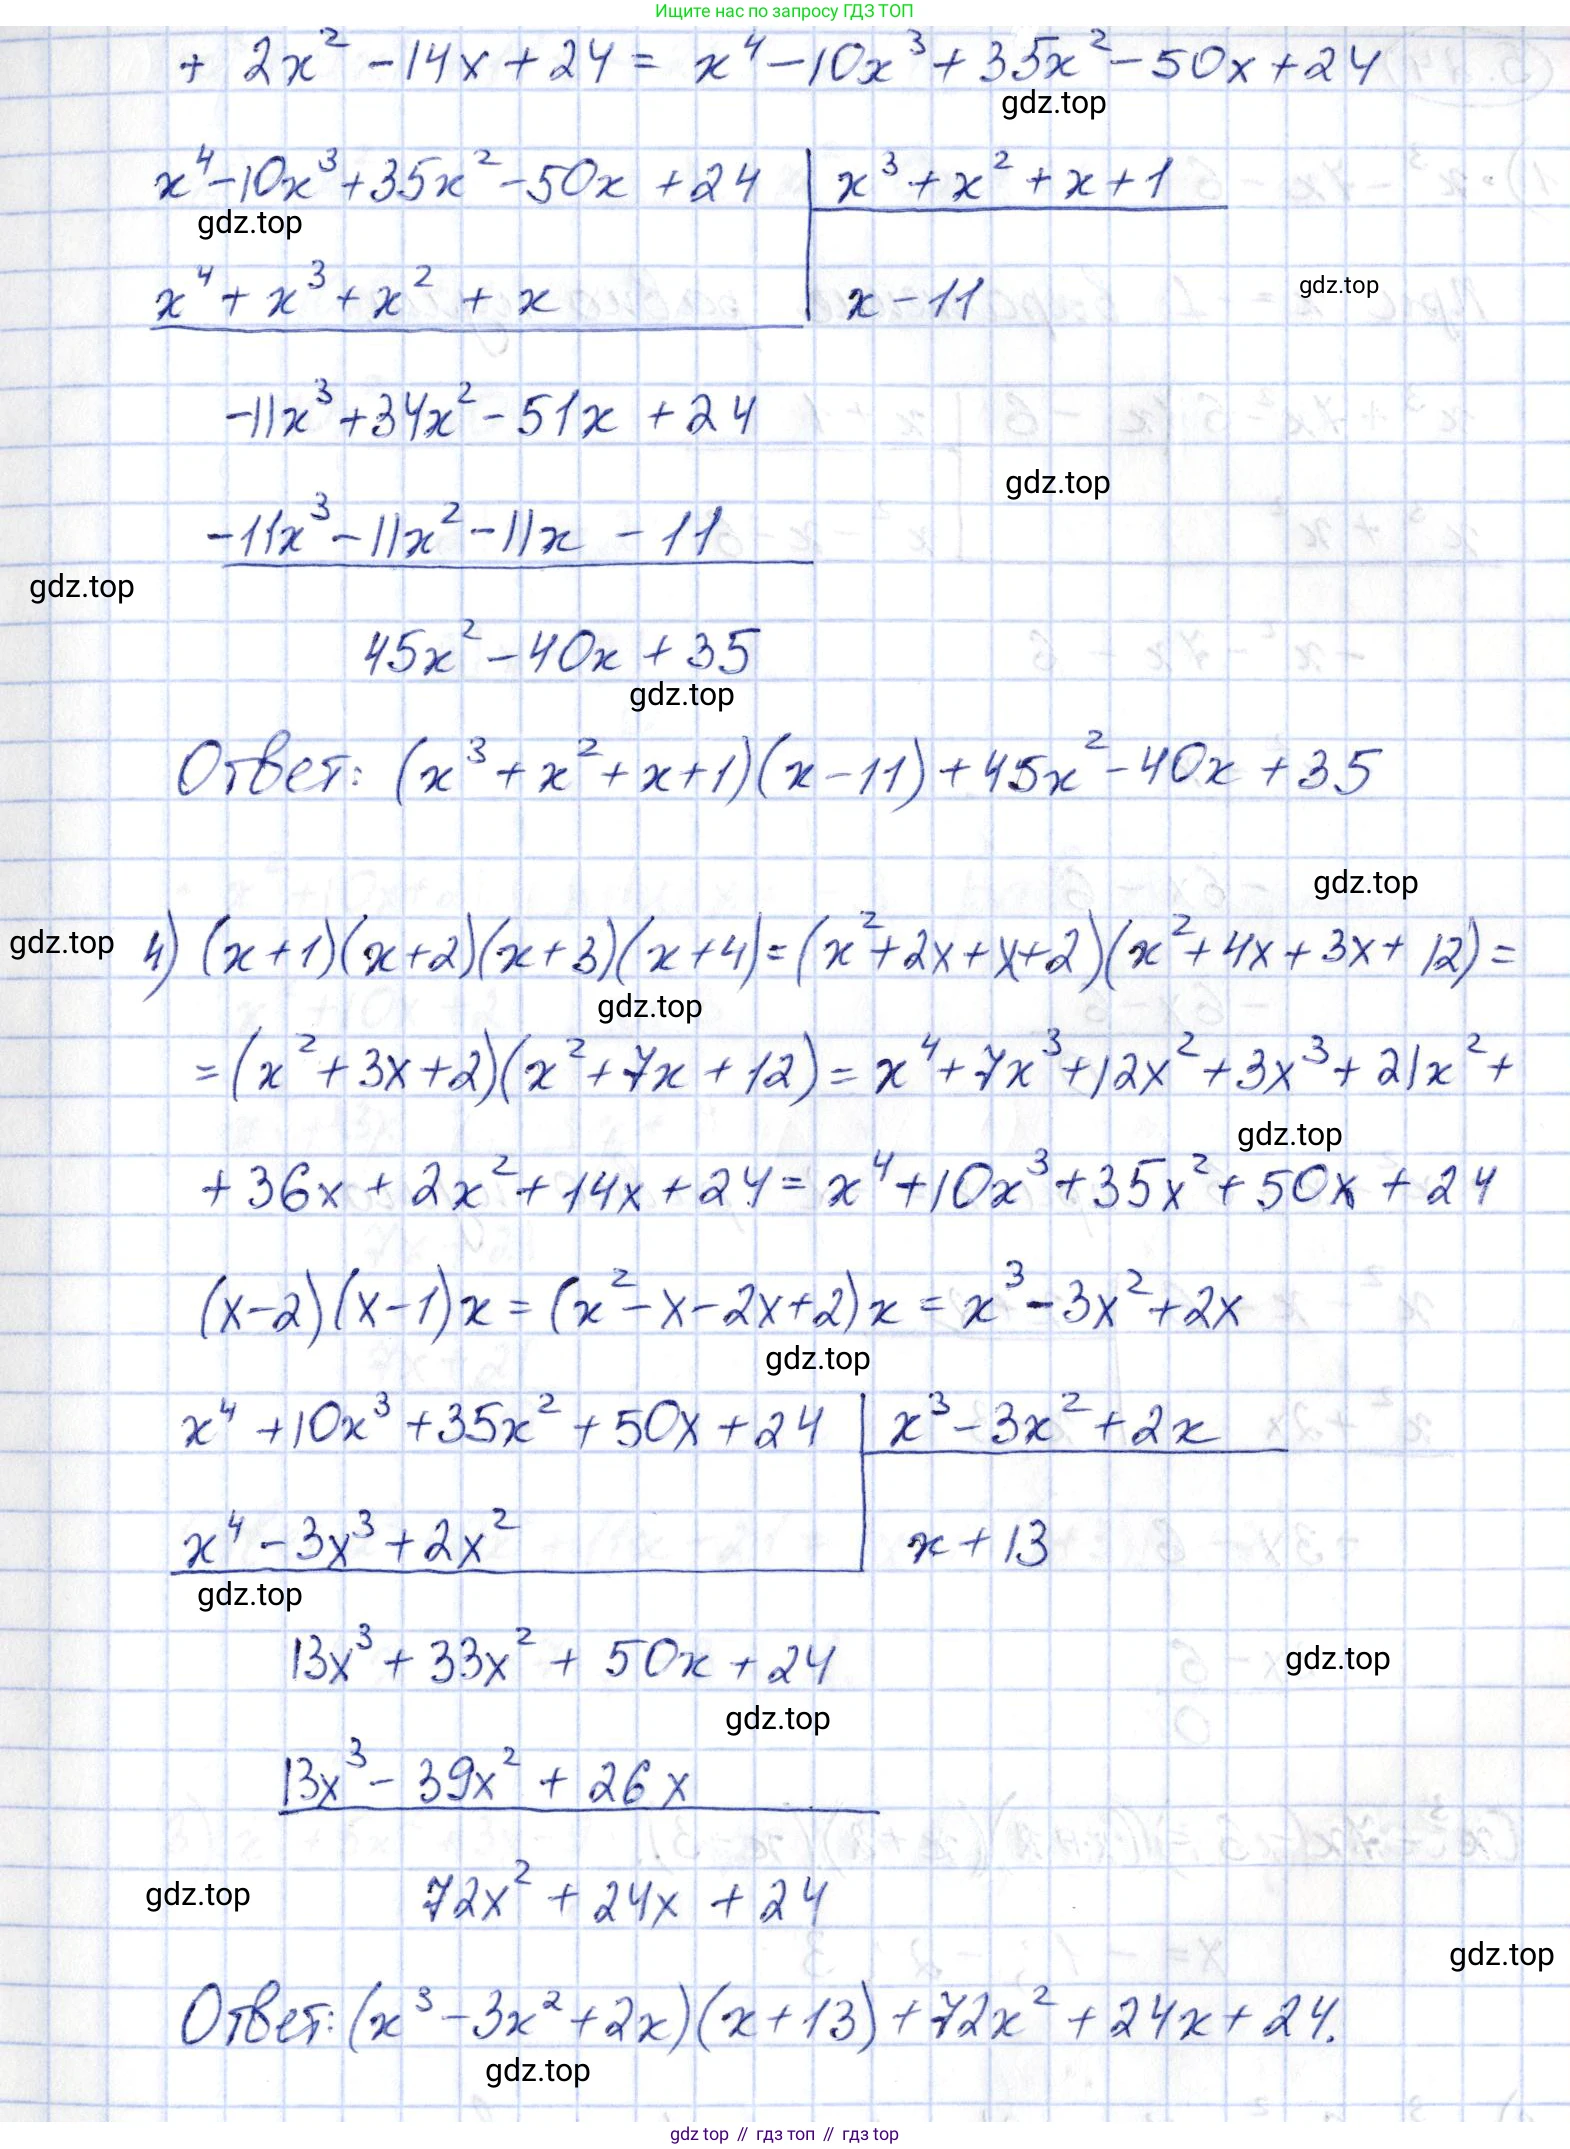 Ищите нас по запросу ГДЗ ТОП
+ 2x² - 14x + 24 = x⁴ - 10x³ + 35x² - 50x + 24
gdz.top
x⁴ - 10x³ + 35x² - 50x + 24 | x³ + x² + x + 1
gdz.top
x⁴ + x³ + x² + x | x - 11
gdz.top
-11x³ + 34x² - 51x + 24
gdz.top
-11x³ - 11x² - 11x - 11
gdz.top
45x² - 40x + 35
gdz.top
Ответ: (x³ + x² + x + 1)(x - 11) + 45x² - 40x + 35
gdz.top
gdz.top
4) (x+1)(x+2)(x+3)(x+4) = (x² + 2x + x + 2)(x² + 4x + 3x + 12) =
gdz.top
= (x² + 3x + 2)(x² + 7x + 12) = x⁴ + 7x³ + 12x² + 3x³ + 21x² +
gdz.top
+ 36x + 2x² + 14x + 24 = x⁴ + 10x³ + 35x² + 50x + 24
(x-2)(x-1)x = (x² - x - 2x + 2)x = x³ - 3x² + 2x
gdz.top
x⁴ + 10x³ + 35x² + 50x + 24 | x³ - 3x² + 2x
x⁴ - 3x³ + 2x² | x + 13
gdz.top
13x³ + 33x² + 50x + 24
gdz.top
gdz.top
13x³ - 39x² + 26x
72x² + 24x + 24
gdz.top
gdz.top
Ответ: (x³ - 3x² + 2x)(x + 13) + 72x² + 24x + 24.
gdz.top
gdz top // гдз топ // gdz top